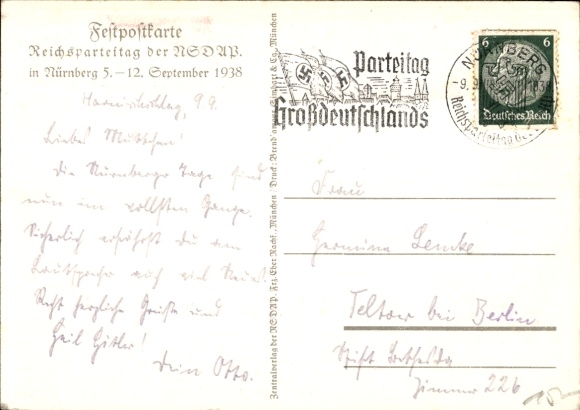 Festpostkarte
Reichsparteitag der NSDAP.
in Nürnberg 5.–12. September 1938
9.9.
Liebes Muttchen!
Die Nürnberger Tage sind
nun im vollsten Gange.
Sicherlich erfährst Du am
Lautsprecher auch viel Neues.
Recht herzliche Grüße und
Heil Hitler!
Dein Otto.
Zentralverlag der NSDAP. Frz. Eher Nachf., München / Druck: Brend'amour, Simhart & Co., München
Parteitag
Großdeutschlands
NÜRNBERG
Reichsparteitag
6
6
Deutsches Reich
Frau
Hermine Lemke
Teltow bei Berlin
Stift Bethesda
Zimmer 226